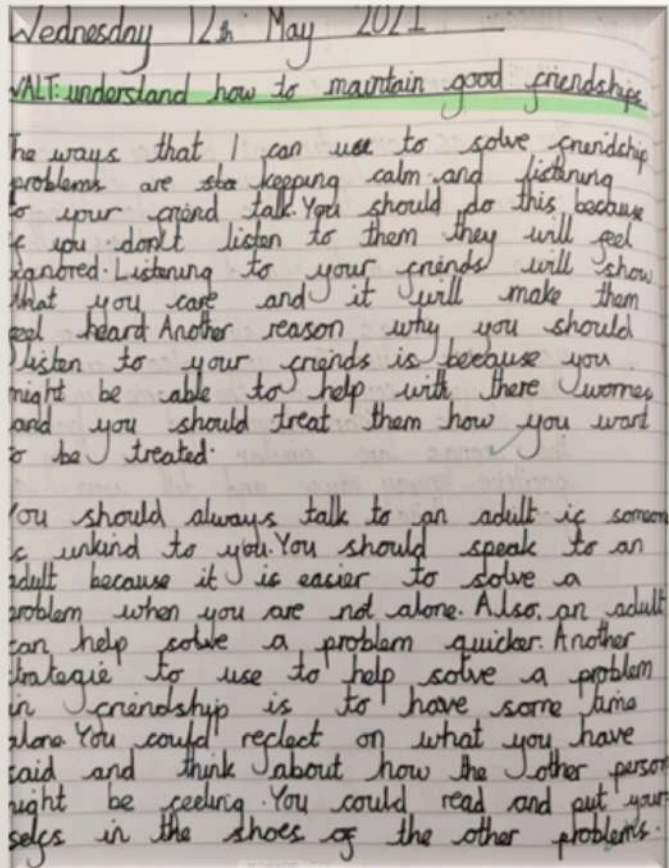 Wednesday 12th May 2021
WALT: understand how to maintain good friendships
The ways that I can use to solve friendship
problems are sta keeping calm and listening
to your friend talk. You should do this because
if you don't listen to them they will feel
ignored. Listening to your friends will show
that you care and it will make them
feel heard Another reason why you should
listen to your friends is because you
might be able to help with there worries
and you should treat them how you want
to be treated.
You should always talk to an adult if someone
is unkind to you. You should speak to an
adult because it is easier to solve a
problem when you are not alone. Also, an adult
can help solve a problem quicker. Another
strategie to use to help solve a problem
in friendship is to have some time
alone. You could reflect on what you have
said and think about how the other person
might be feeling. You could read and put your
selfs in the shoes of the other problems.